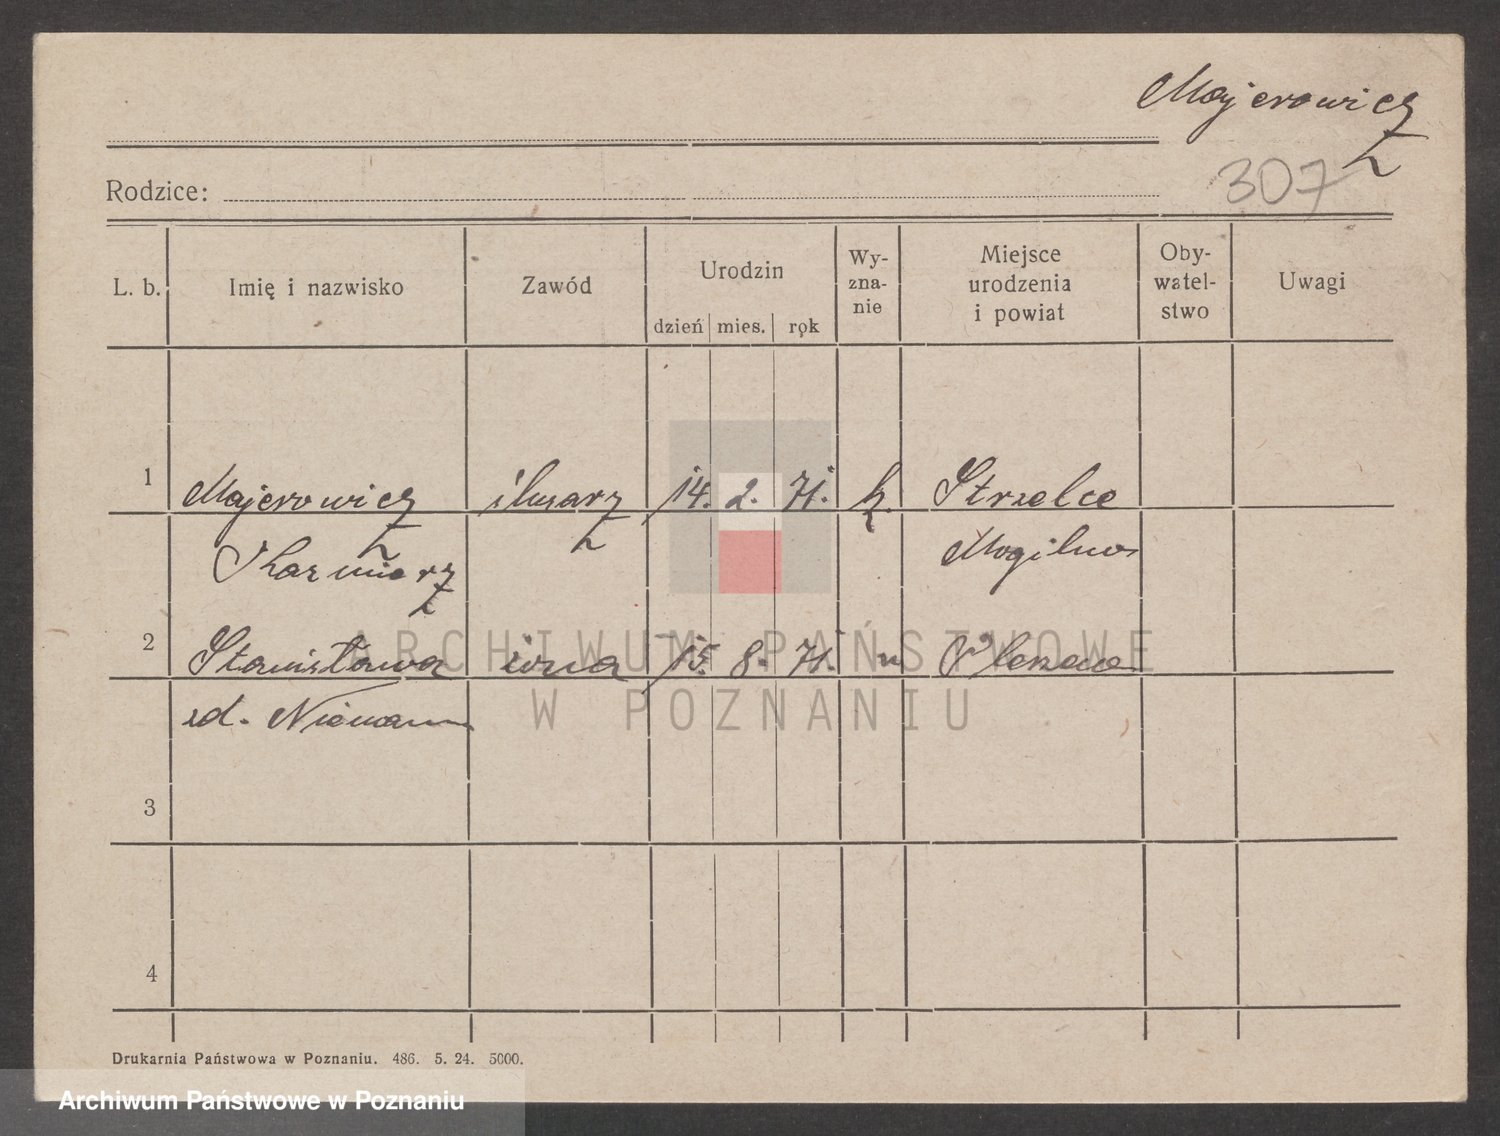 Majerowicz
307
Rodzice:
L. b. Imię i nazwisko Zawód Urodzin Wy- zna- nie Miejsce urodzenia i powiat Oby- watel- stwo Uwagi
dzień mies. rok
1 Majerowicz ślusarz 14. 2. 71. k. Strzelce
Kazmierz Mogilno
2 Stanisława żona 15. 8. 71. " Pleszew
zd. Niemann
3
4
Drukarnia Państwowa w Poznaniu. 486. 5. 24. 5000.
ARCHIWUM PAŃSTWOWE
W POZNANIU
Archiwum Państwowe w Poznaniu